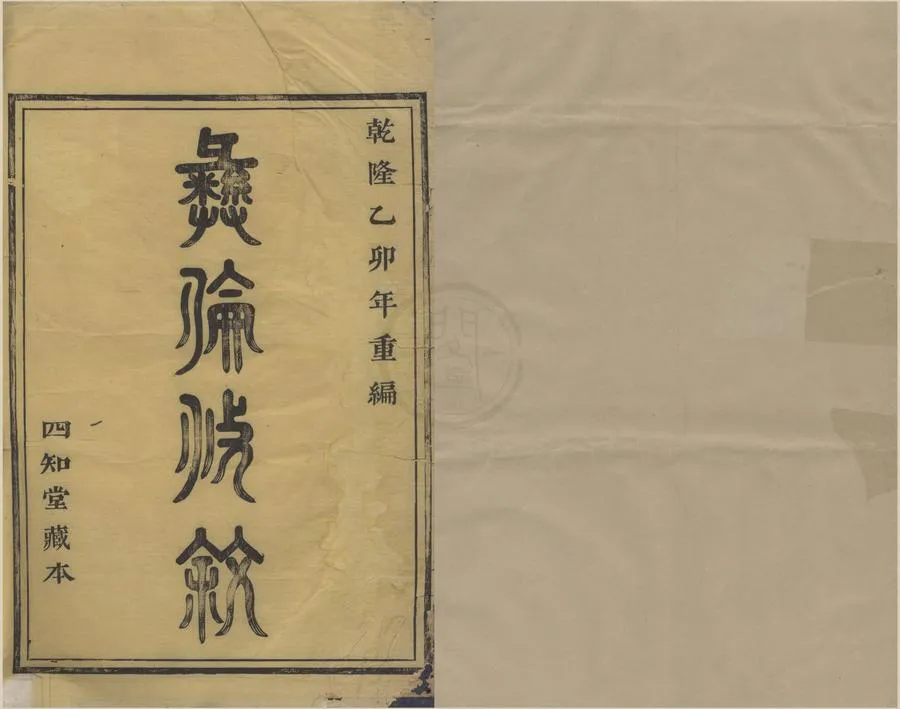 乾隆乙卯年重編
彝倫攸敘
四知堂藏本